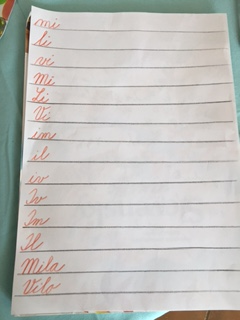 mi
li
vi
Mi
Li
Vi
im
il
iv
Iv
Im
Il
Mila
Vilo